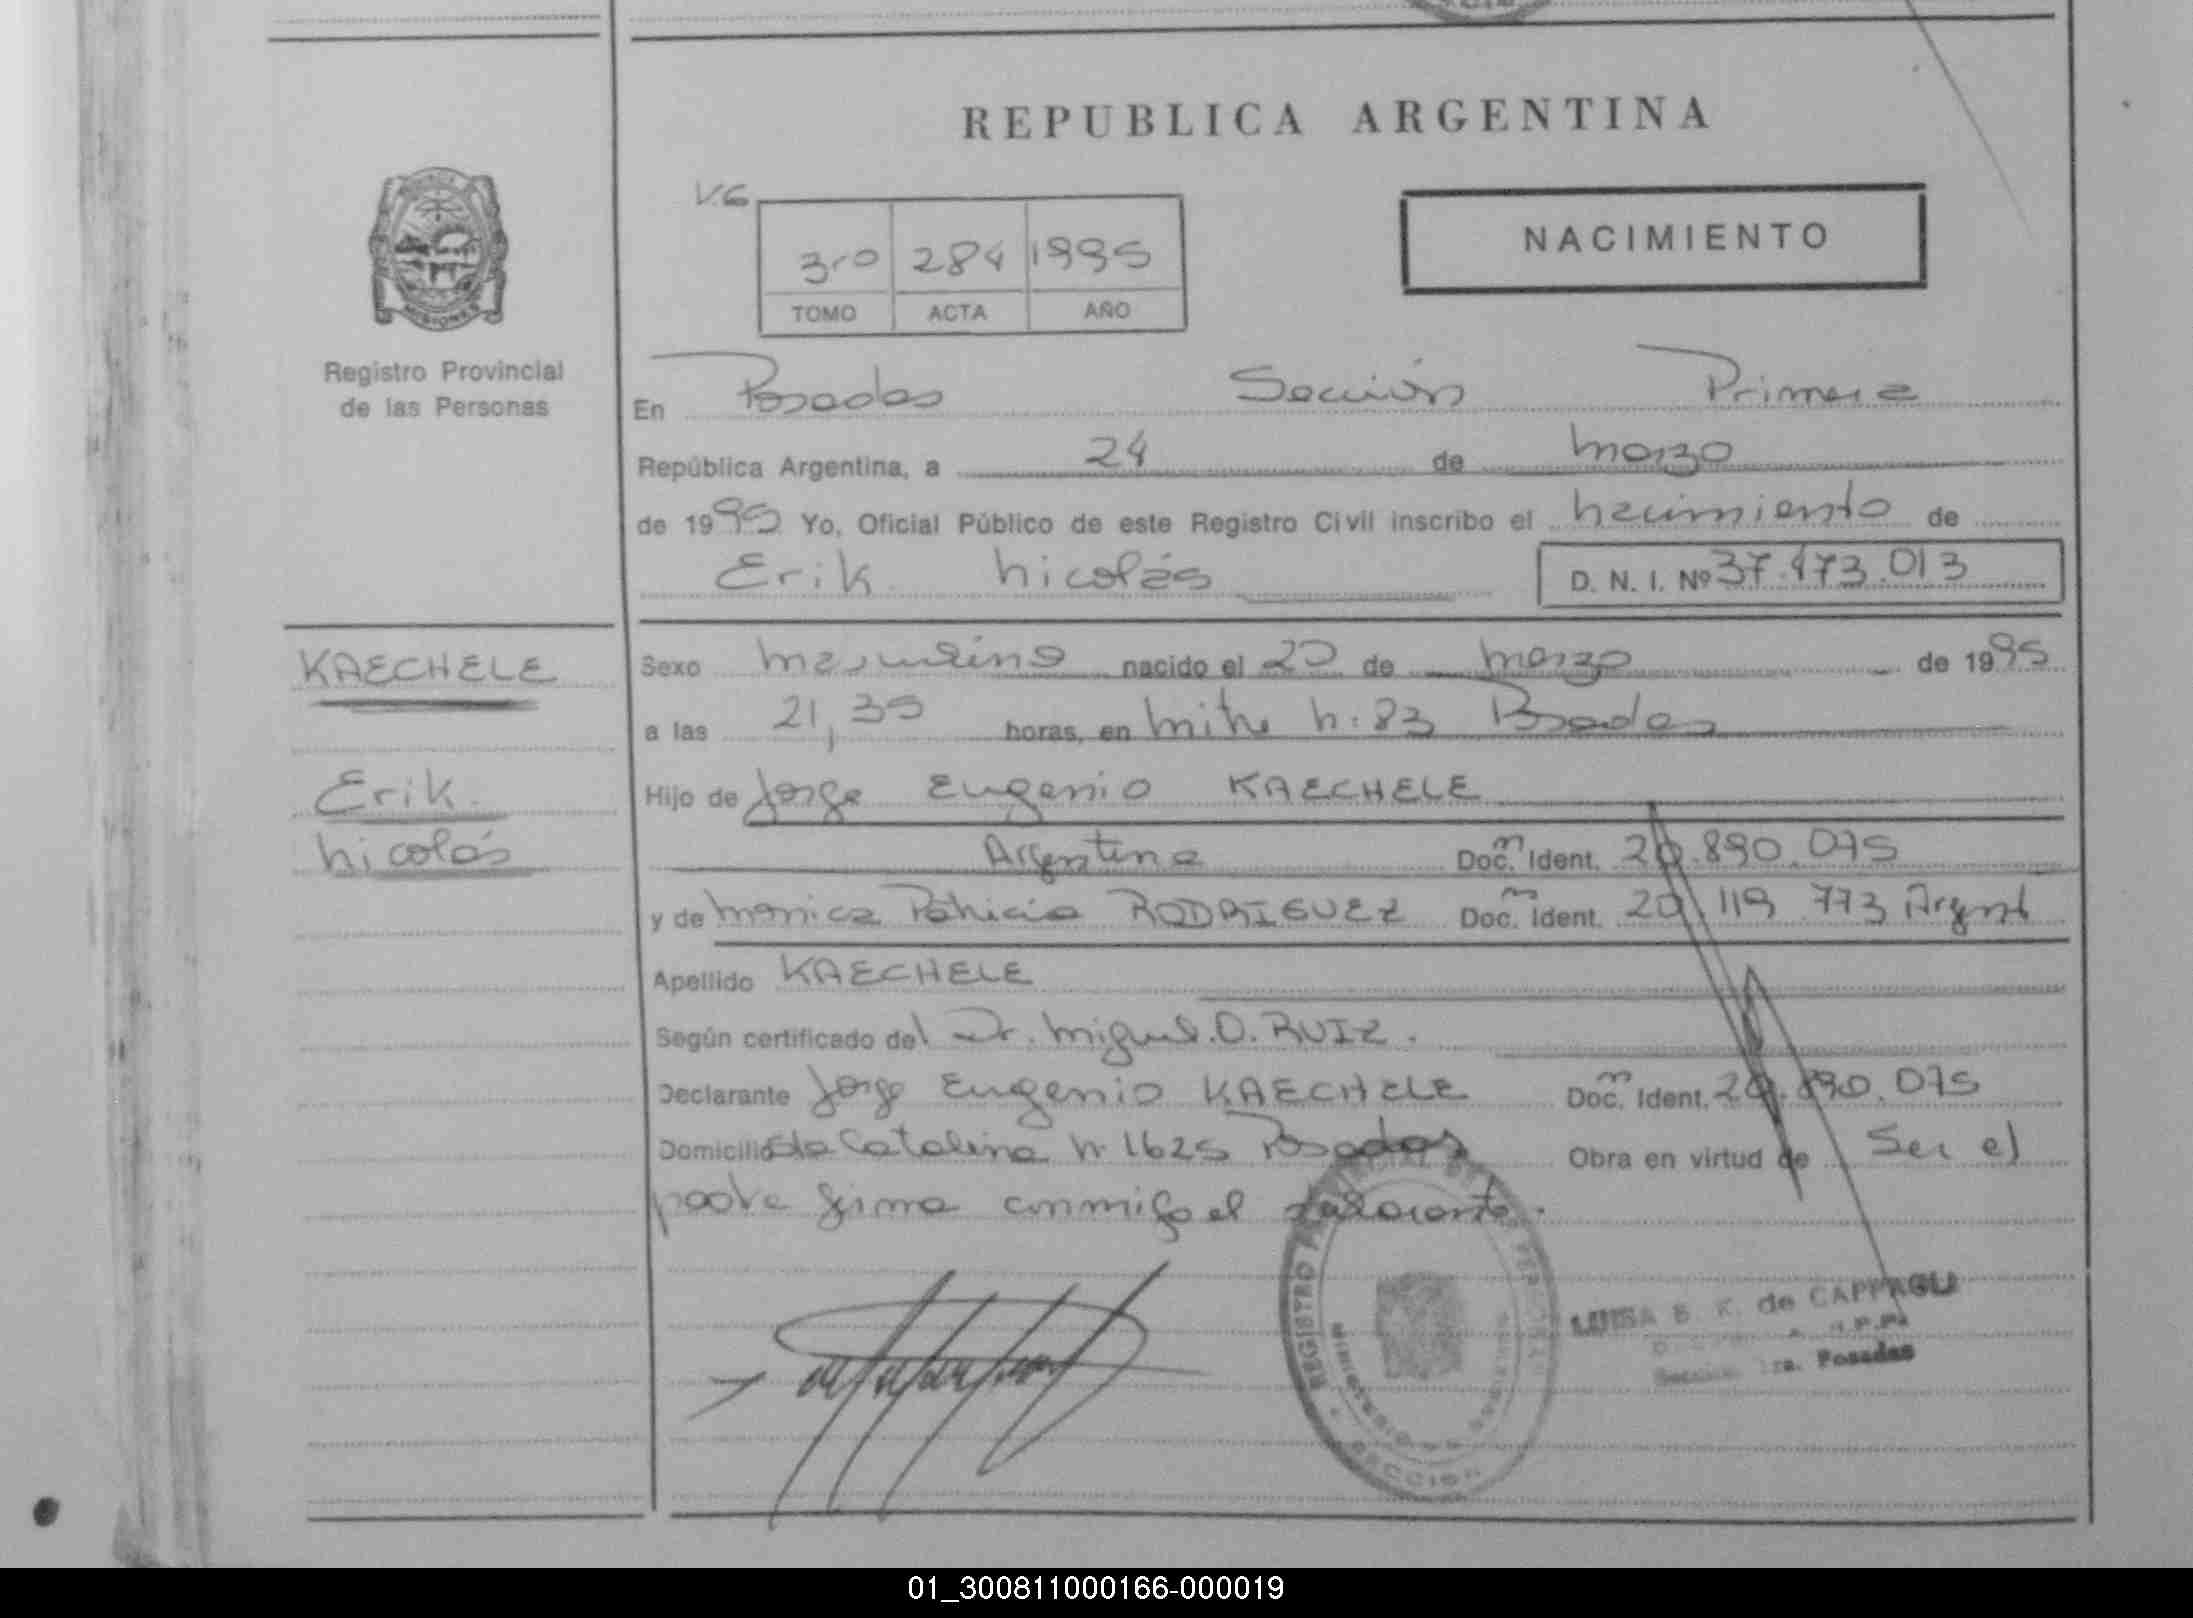 REPUBLICA ARGENTINA
V.G
3ro 284 1995
TOMO ACTA AÑO
NACIMIENTO
MISIONES
Registro Provincial
de las Personas
En Posadas Sección Primera
República Argentina, a 24 de marzo
de 1995 Yo, Oficial Público de este Registro Civil inscribo el nacimiento de
Erik Nicolás
D. N. I. Nº 37.473.013
KAECHELE
Erik
Nicolás
Sexo masculino nacido el 20 de marzo de 1995
a las 21,35 horas, en Mitre N: 83 Posadas
Hijo de Jorge Eugenio KAECHELE
Argentina Doc. Ident. 20.890.075
y de Monica Patricia RODRIGUEZ Doc. Ident. 20.119.773 Argent
Apellido KAECHELE
Según certificado del Dr. Miguel.O. RUIZ.
Declarante Jorge Eugenio KAECHELE Doc. Ident. 20.890.075
Domicilio Sta Catalina N. 1625 Posadas Obra en virtud de Ser el
padre firma conmigo el
REGISTRO
SECCION
LUISA B. K. de CAPPAGLI
Sección 1ra. Posadas
01_300811000166-000019